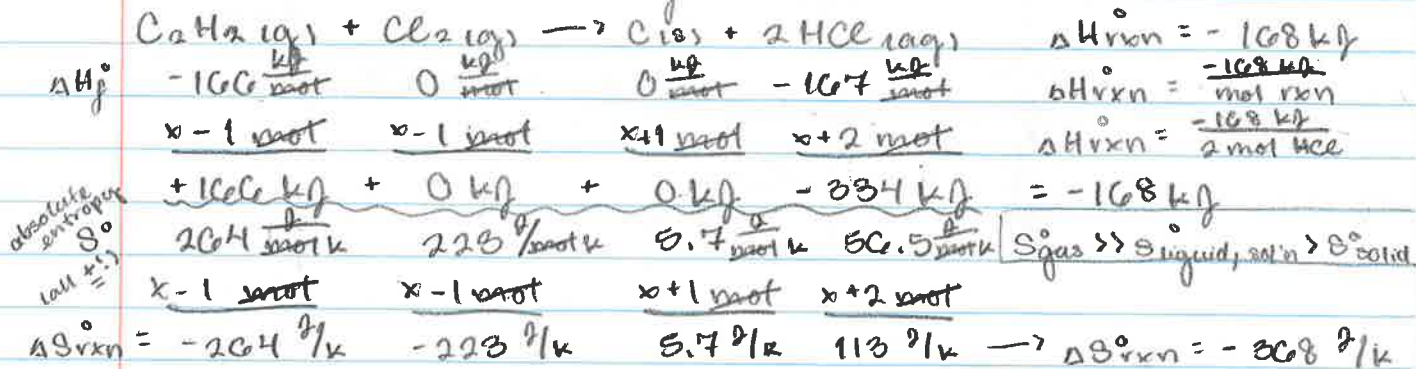 C2H2(g) + Cl2(g) → C(s) + 2 HCl(aq) ΔH°rxn = -168 kJ
ΔHf° -166 kJ/mol 0 kJ/mol 0 kJ/mol -167 kJ/mol ΔH°rxn = -168 kJ/mol rxn
x -1 mol x -1 mol x +1 mol x +2 mol ΔH°rxn = -168 kJ/2 mol HCl
+166 kJ + 0 kJ + 0 kJ - 334 kJ = -168 kJ
absolute entropy S° (all +!) 264 J/mol K 223 J/mol K 5.7 J/mol K 56.5 J/mol K S°gas >> S°liquid, sol'n > S°solid
x -1 mol x -1 mol x +1 mol x +2 mol
ΔS°rxn = -264 J/K -223 J/K 5.7 J/K 113 J/K → ΔS°rxn = -368 J/K